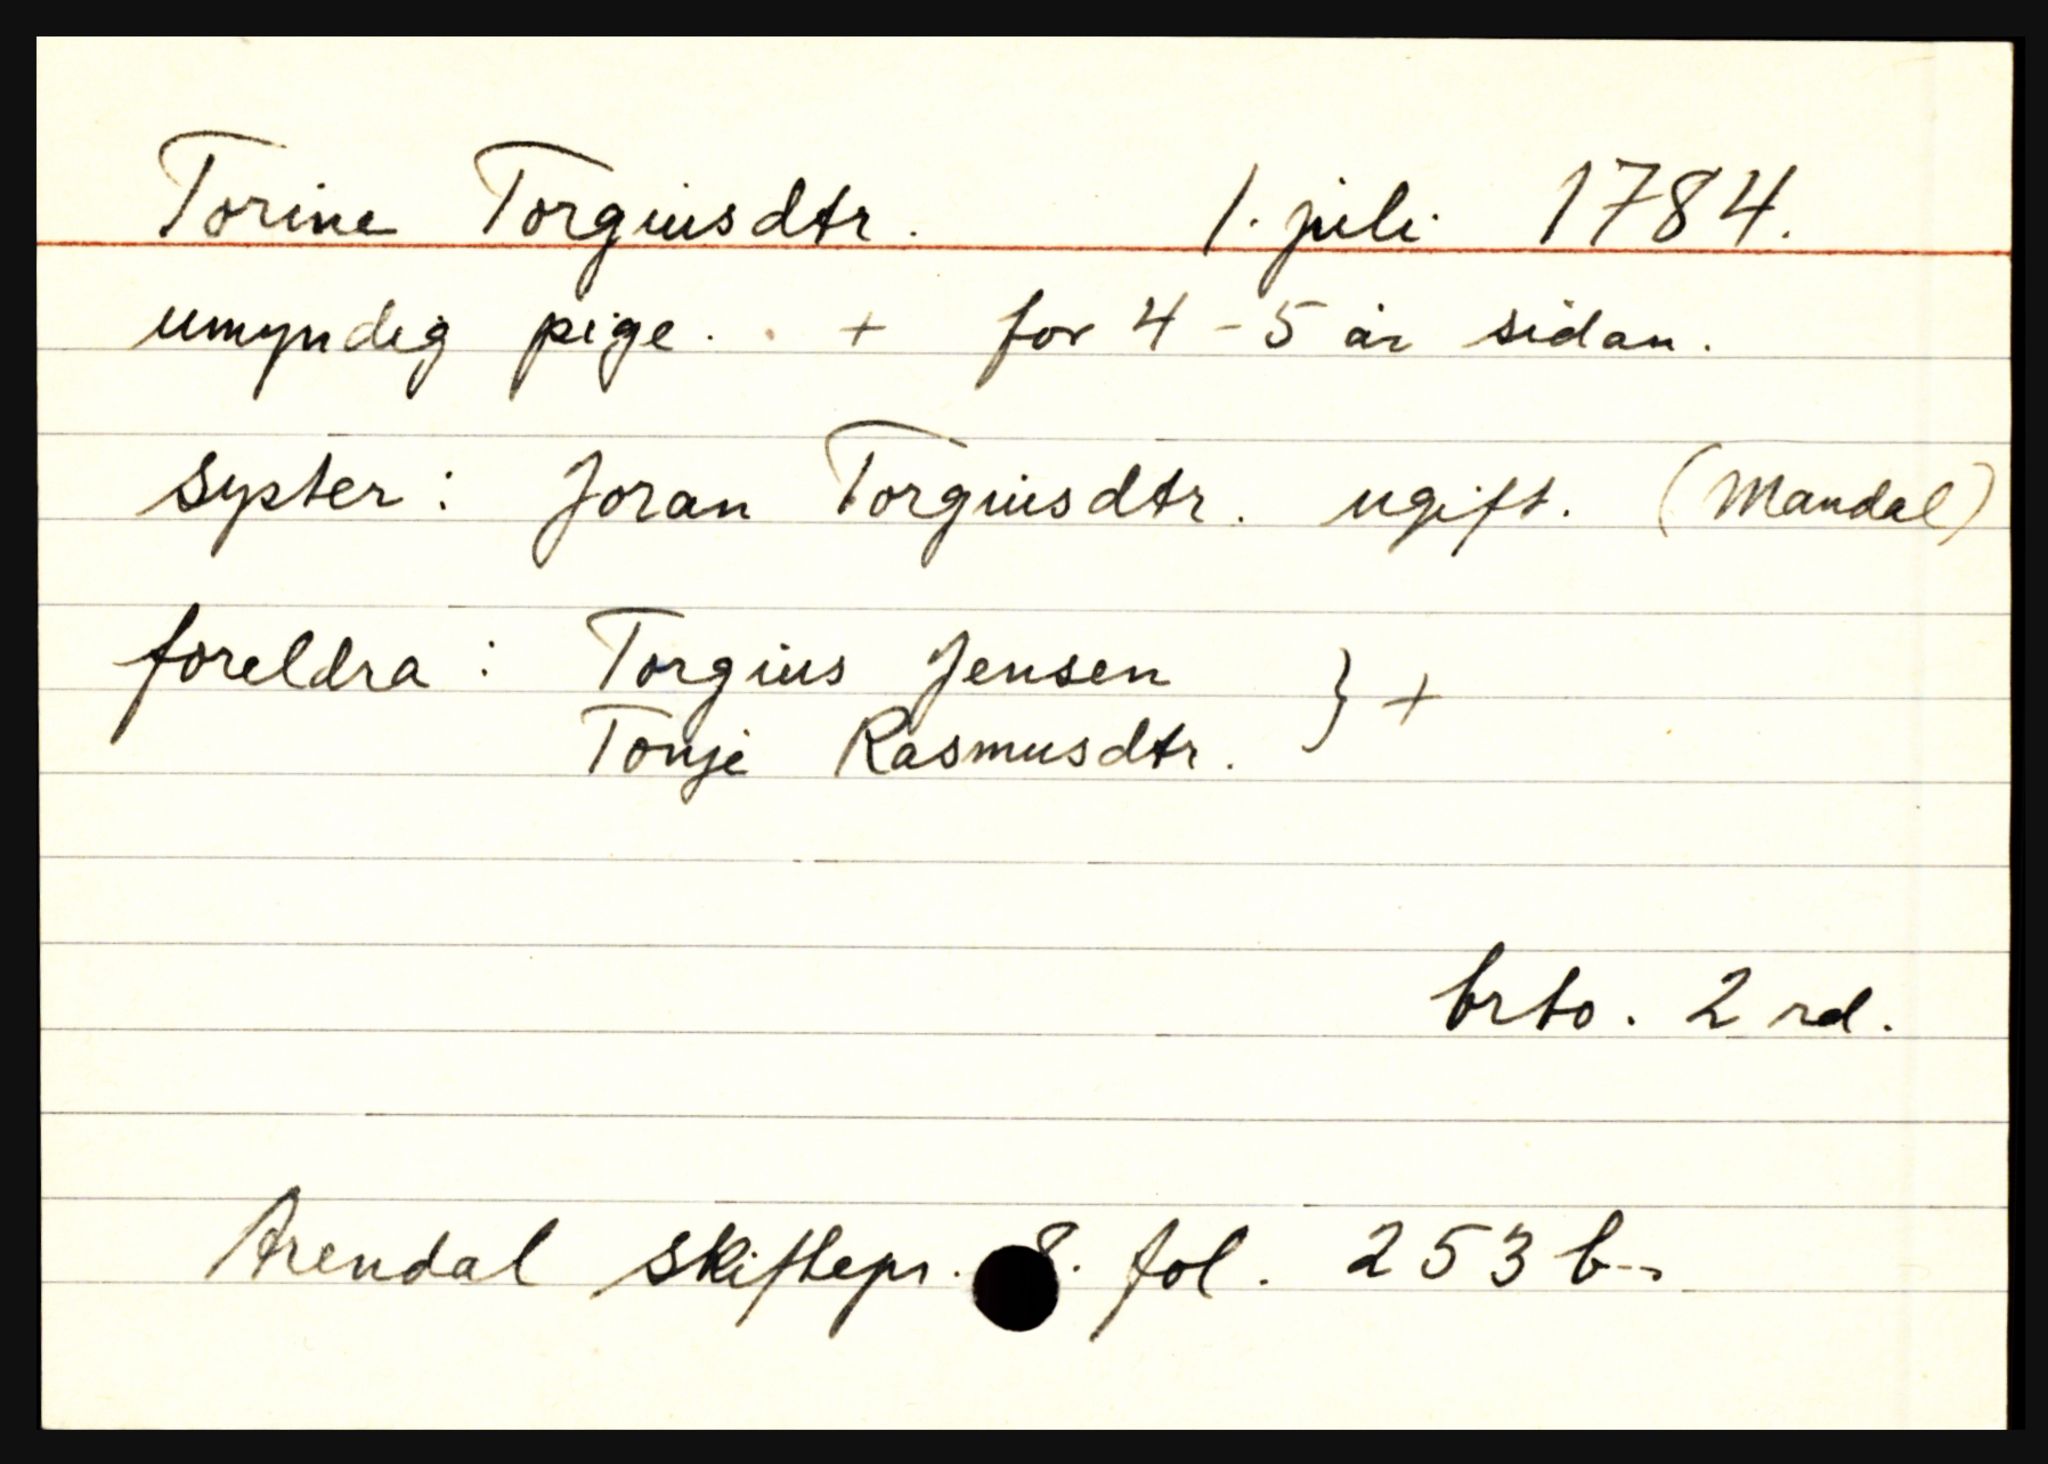 Torine Torgiusdtr. 1. juli 1784.
umyndig pige. + for 4-5 år sidan.
syster: Joran Torgiusdtr. ugift. (Mandal)
foreldra: Torgius Jensen } +
Tonje Rasmusdtr.
brto. 2 rd.
Arendal skiftepr. 8. fol. 253 b--